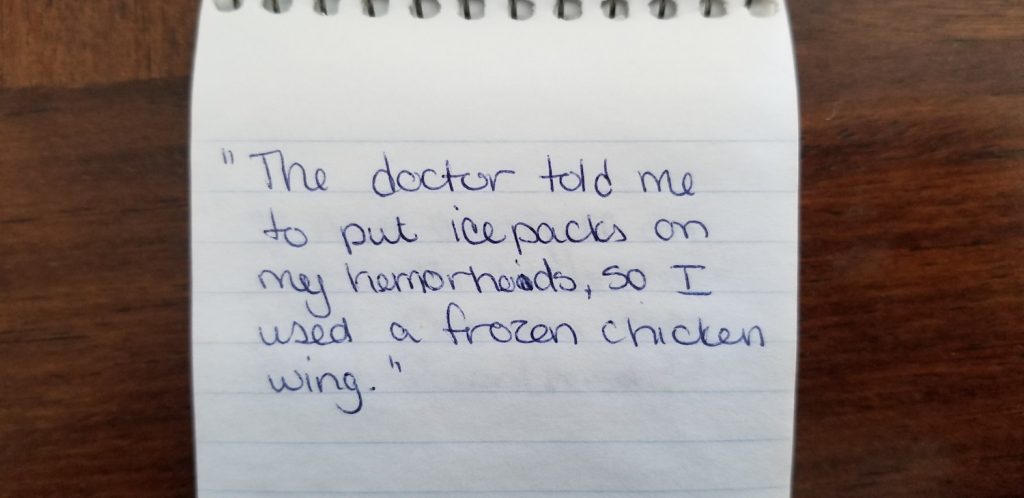 "The doctor told me
to put icepacks on
my hemorhoids, so I
used a frozen chicken
wing."